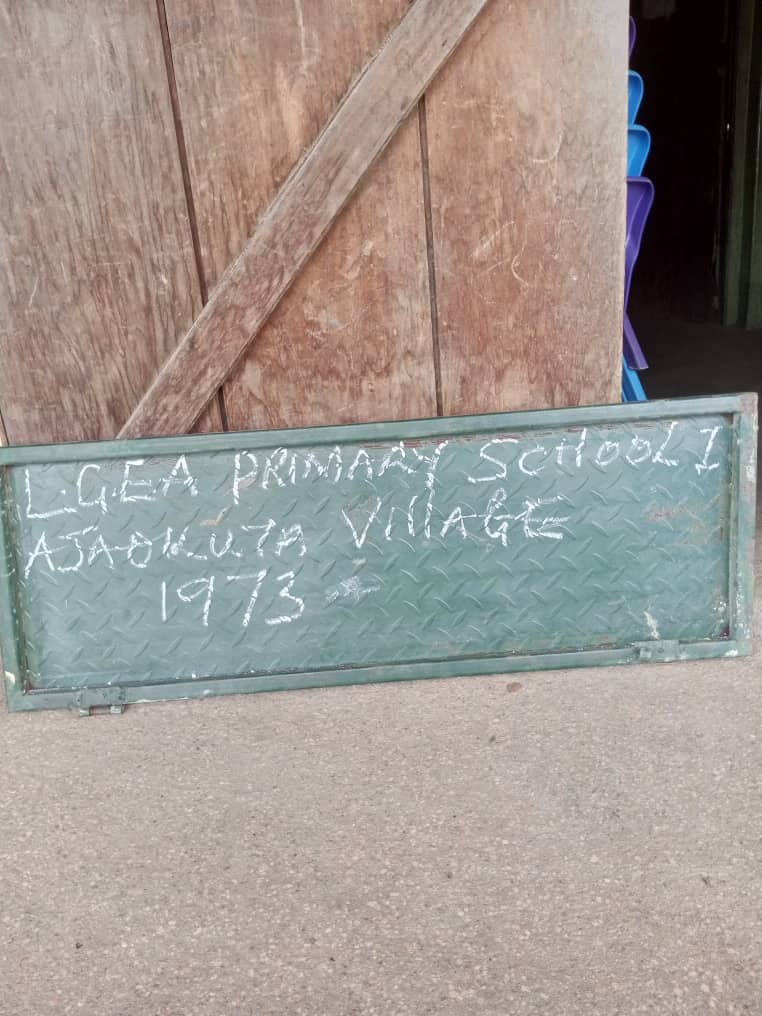 L.G.E.A PRIMARY SCHOOL I
AJAOKUTA VILLAGE
1973